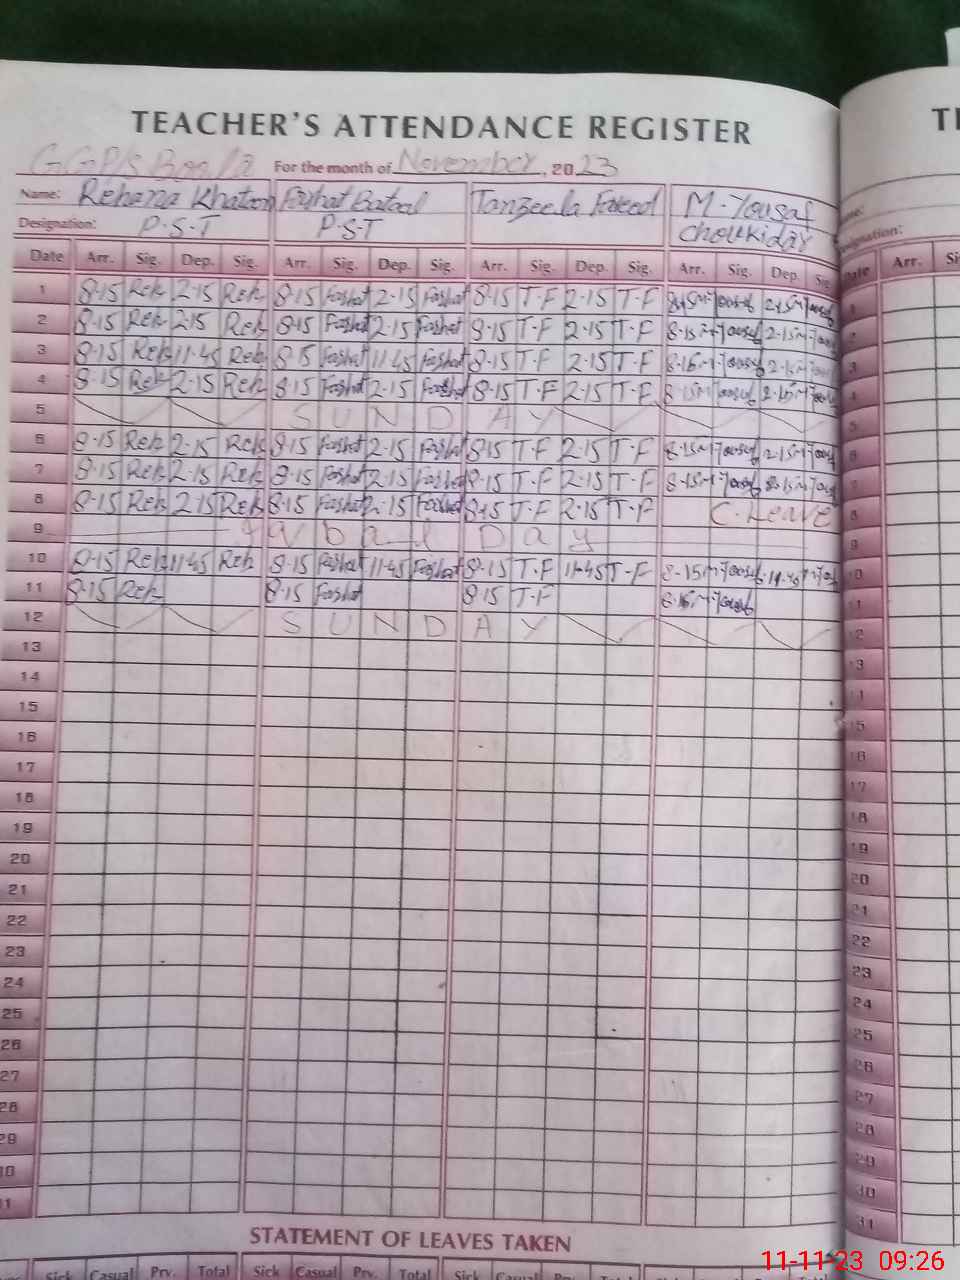 TEACHER'S ATTENDANCE REGISTER
For the month of November, 2023
Name: Rehana Khatoon Farhat Batool Tanzeela Fareed M. Yousaf
Designation: P.S.T P.S.T Choukidar
Date Arr. Sig. Dep. Sig. Arr. Sig. Dep. Sig. Arr. Sig. Dep. Sig. Arr. Sig. Dep. Sig
1 8-15 Reh 2-15 Reh 8-15 Farhat 2-15 Farhat 8-15 T.F 2-15 T.F 8-15 M-Yousaf 2-15 M-Yousaf
2 8-15 Reh 2-15 Reh 8-15 Farhat 2-15 Farhat 8-15 T.F 2-15 T.F 8-15 M-Yousaf 2-15 M-Yousaf
3 8-15 Reh 11-45 Reh 8-15 Farhat 11-45 Farhat 8-15 T.F 2-15 T.F 8-15 M-Yousaf 2-15 M-Yousaf
4 8-15 Reh 2-15 Reh 8-15 Farhat 2-15 Farhat 8-15 T.F 2-15 T.F 8-15 M-Yousaf 2-15 M-Yousaf
5 SUNDAY
6 8-15 Reh 2-15 Reh 8-15 Farhat 2-15 Farhat 8-15 T.F 2-15 T.F 8-15 M-Yousaf 2-15 M-Yousaf
7 8-15 Reh 2-15 Reh 8-15 Farhat 2-15 Farhat 8-15 T.F 2-15 T.F 8-15 M-Yousaf 2-15 M-Yousaf
8 8-15 Reh 2-15 Reh 8-15 Farhat 2-15 Farhat 8-15 T.F 2-15 T.F C. Leave
9 Iqbal Day
10 8-15 Reh 11-45 Reh 8-15 Farhat 11-45 Farhat 8-15 T.F 11-45 T.F 8-15 M-Yousaf 11-45 M-Yousaf
11 8-15 Reh 8-15 Farhat 8-15 T.F 8-15 M-Yousaf
12 SUNDAY
13
14
15
16
17
18
19
20
21
22
23
24
25
26
27
28
29
30
31
STATEMENT OF LEAVES TAKEN
Sick Casual Prv. Total Sick Casual Prv. Total Sick Casual Prv. Total
11-11-23 09:26